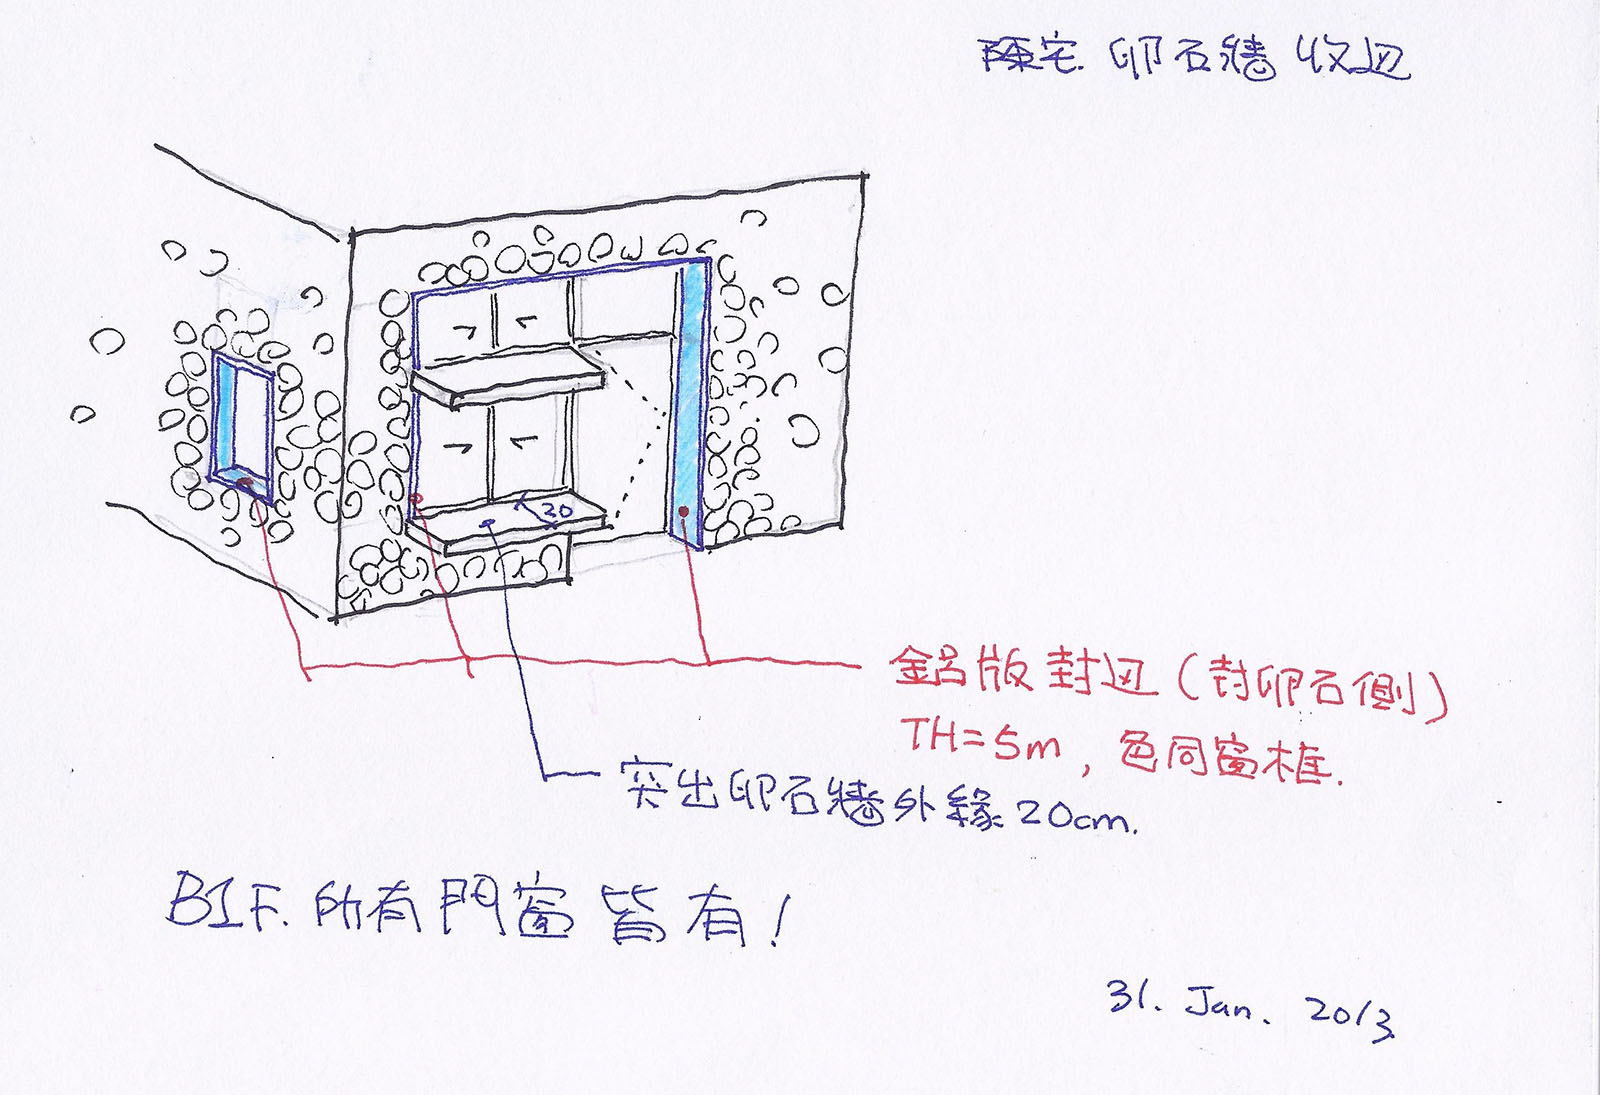 陳宅. 卵石牆 收边
20
鋁版封边（封卵石側）
TH=5m，色同窗框.
突出卵石牆外緣20cm.
B1F. 所有門窗皆有！
31. Jan. 2013